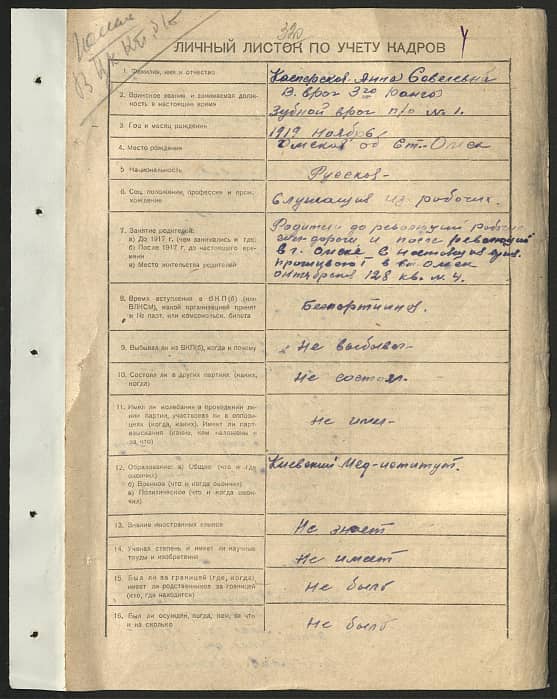 320
ЛИЧНЫЙ ЛИСТОК ПО УЧЕТУ КАДРОВ
1. Фамилия, имя и отчество
Касперская Анна Савельевна
2. Воинское звание и занимаемая долж-
ность в настоящее время
В. врач 3го ранга
Зубной врач п/о № 1.
3. Год и месяц рождения
1919 Ноябрь
4. Место рождения
Омская об Ст. Омск
5. Национальность
Русская-
6. Соц. положение, профессия и прои-
хождение
Служащая из рабочих.
7. Занятие родителей:
а) До 1917 г. (чем занимались и где)
б) После 1917 г. до настоящего вре-
мени
в) Место жительства родителей
Родители до революции рабочие
дороги и после революции
в г. Омске. В настоящее время
проживают в г. Омск
октябрьская 128 кв. № 4.
8. Время вступления в ВКП(б) (или
ВЛКСМ), какой организацией принят
и № парт. или комсомольск. билета
Беспартийная.
9. Выбывал ли из ВКП(б), когда и почему
Не выбывал-
10. Состоял ли в других партиях (каких,
когда)
Не состоял.
11. Имел ли колебания в проведении ли-
нии партии, участвовал ли в оппози-
циях (когда, каких). Имеет ли парт-
взыскания (какие, кем наложены и
за что)
Не име-
12. Образование: а) Общее (что и где
окончил)
б) Военное (что и когда окончил)
в) Политическое (что и когда окон-
чил)
Киевский Мед-иститут.
13. Знание иностранных языков
Не знает
14. Ученая степень и имеет ли научные
труды и изобретения
Не имеет
15. Был ли за границей (где, когда),
имеет ли родственников за границей
(кто, где находится)
Не был
16. Был ли осужден, когда, кем, за что
и на сколько
Не был